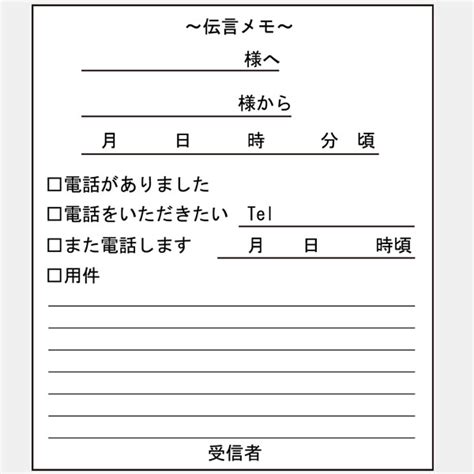 ～伝言メモ～
様へ
様から
月 日 時 分 頃
□電話がありました
□電話をいただきたい Tel
□また電話します 月 日 時頃
□用件
受信者